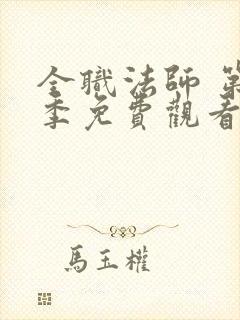 全職法師 第
季免費觀看
馬玉權